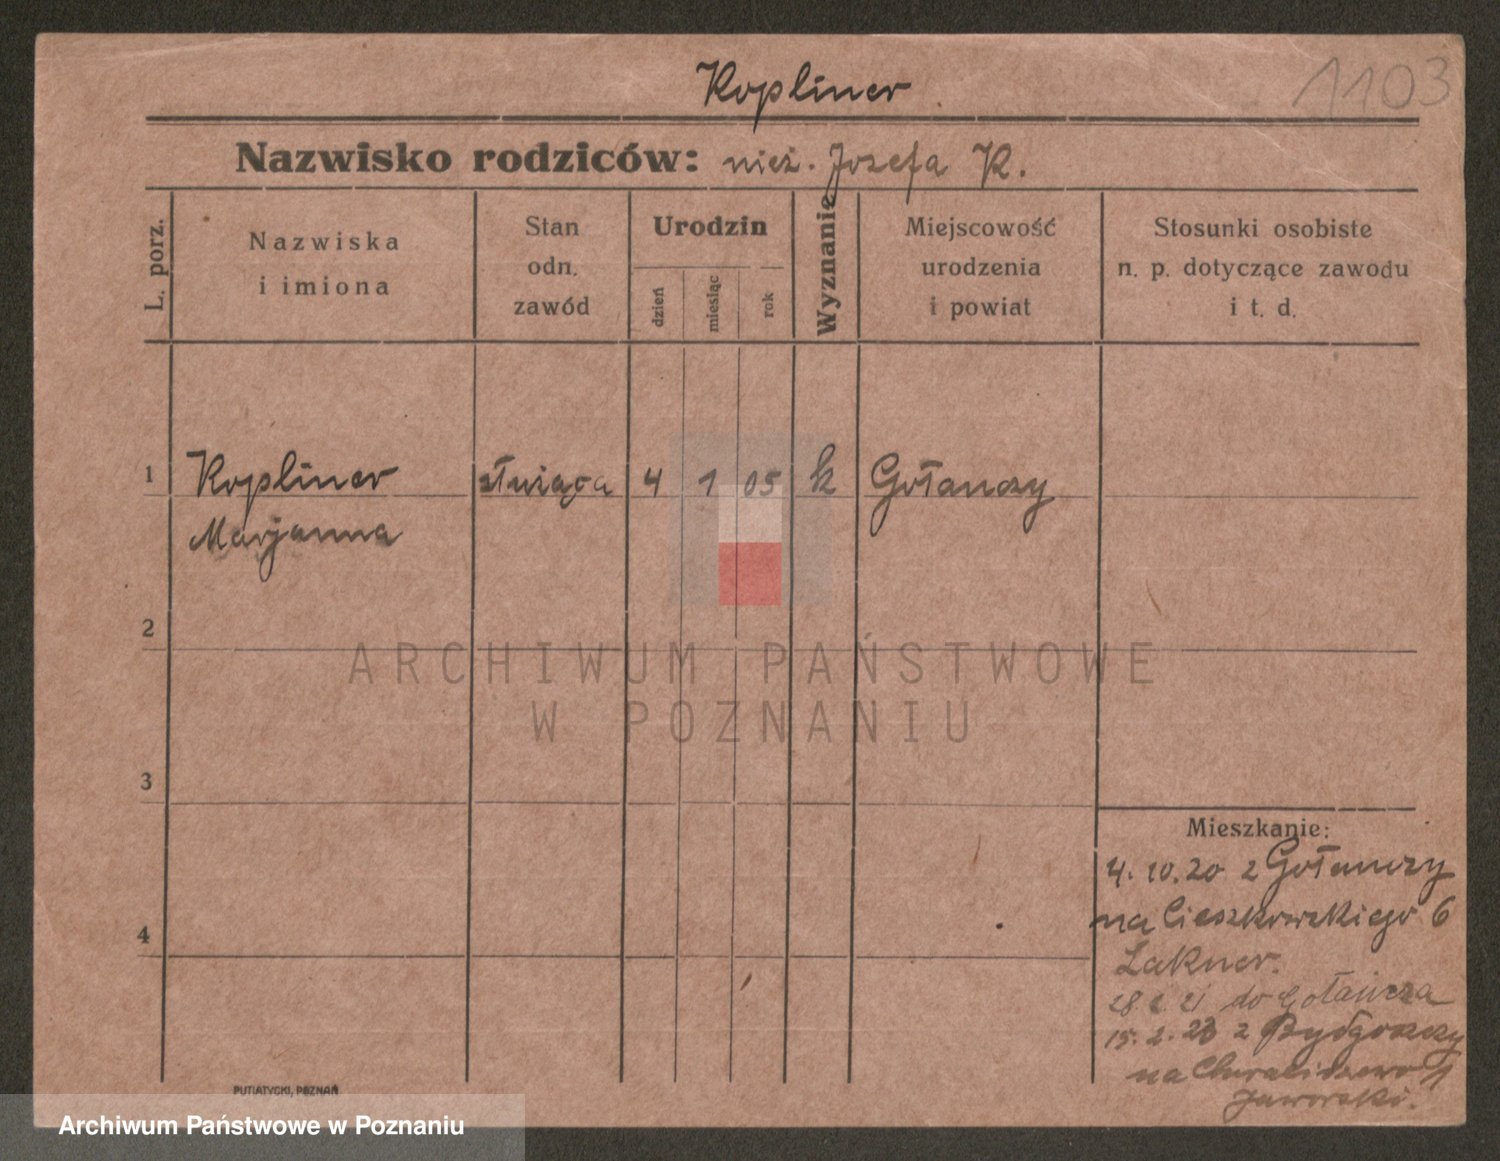 Kopliner
1103
Nazwisko rodziców: nież. Józefa K.
L. porz.
Nazwiska
i imiona
Stan
odn.
zawód
Urodzin
dzień
miesiąc
rok
Wyznanie
Miejscowość
urodzenia
i powiat
Stosunki osobiste
n. p. dotyczące zawodu
i t. d.
1 Kopliner służąca 4 1 05 k Gołanczy
Marjanna
2
ARCHIWUM PAŃSTWOWE
W POZNANIU
3
Mieszkanie:
4. 10. 20 z Gołanczy
na Cieszkowskiego 6
4
Lakner.
21 do Gołańcza
15. 2. 23 z Bydgoszczy
na Chwaliszewo
Jaworski.
PUTIATYCKI, POZNAŃ
Archiwum Państwowe w Poznaniu